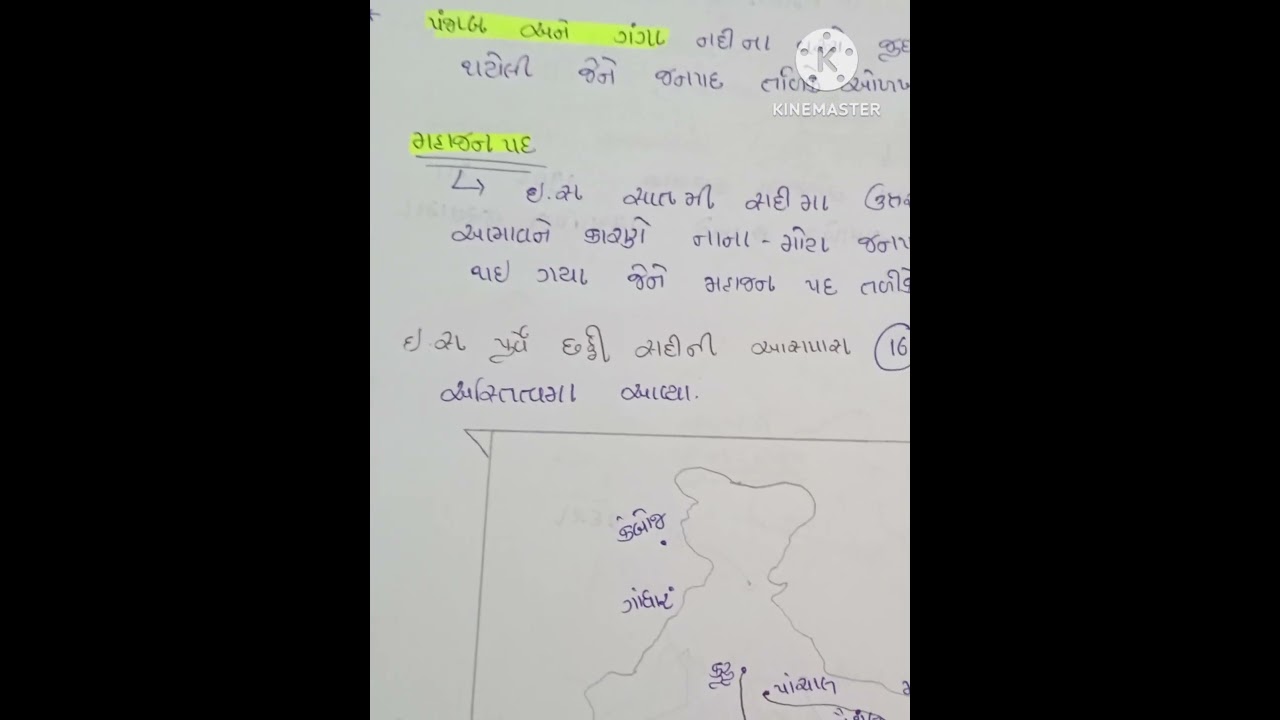 પંજાબ અને ગંગા નદીના
થયેલી જેને જનપદ તળિકે ઓળખ
KINEMASTER
મહાજન પદ
ઇ.સ સાતમી સદીમા ઉત્તર
આભાવને કારણે નાના - મોટા જનપ
થઇ ગયા જેને મહાજન પદ તળીકે
ઇ.સ પૂર્વે છઠ્ઠી સદીની આસપાસ 16
અસ્તિત્વમા આવ્યા.
કંબોજ
ગાંધાર
કુરુ
પાંચાલ